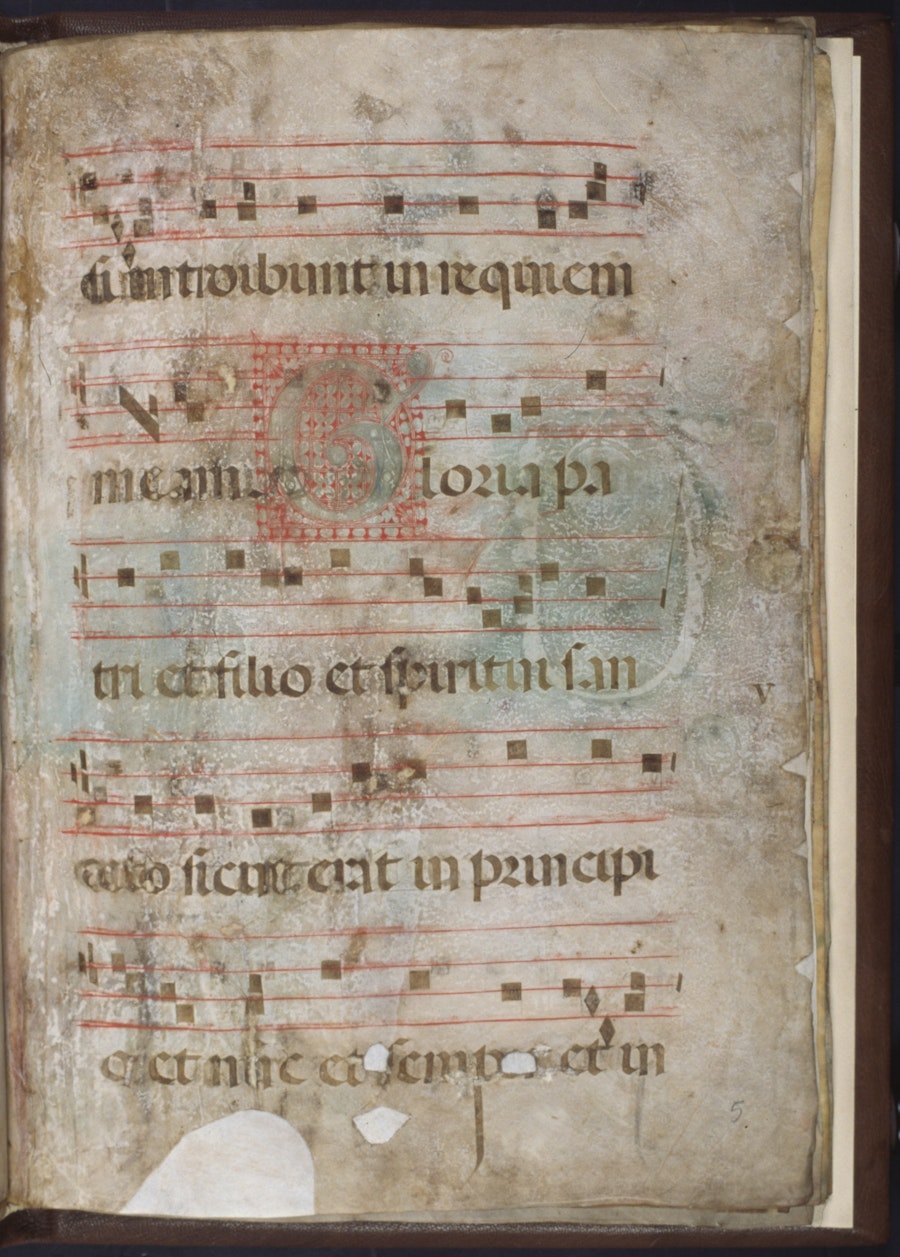 si introibunt in requiem
meam. Gloria pa
tri et filio et spiritui san
cto sicut erat in principi
v
o et nūc et semper et in
5